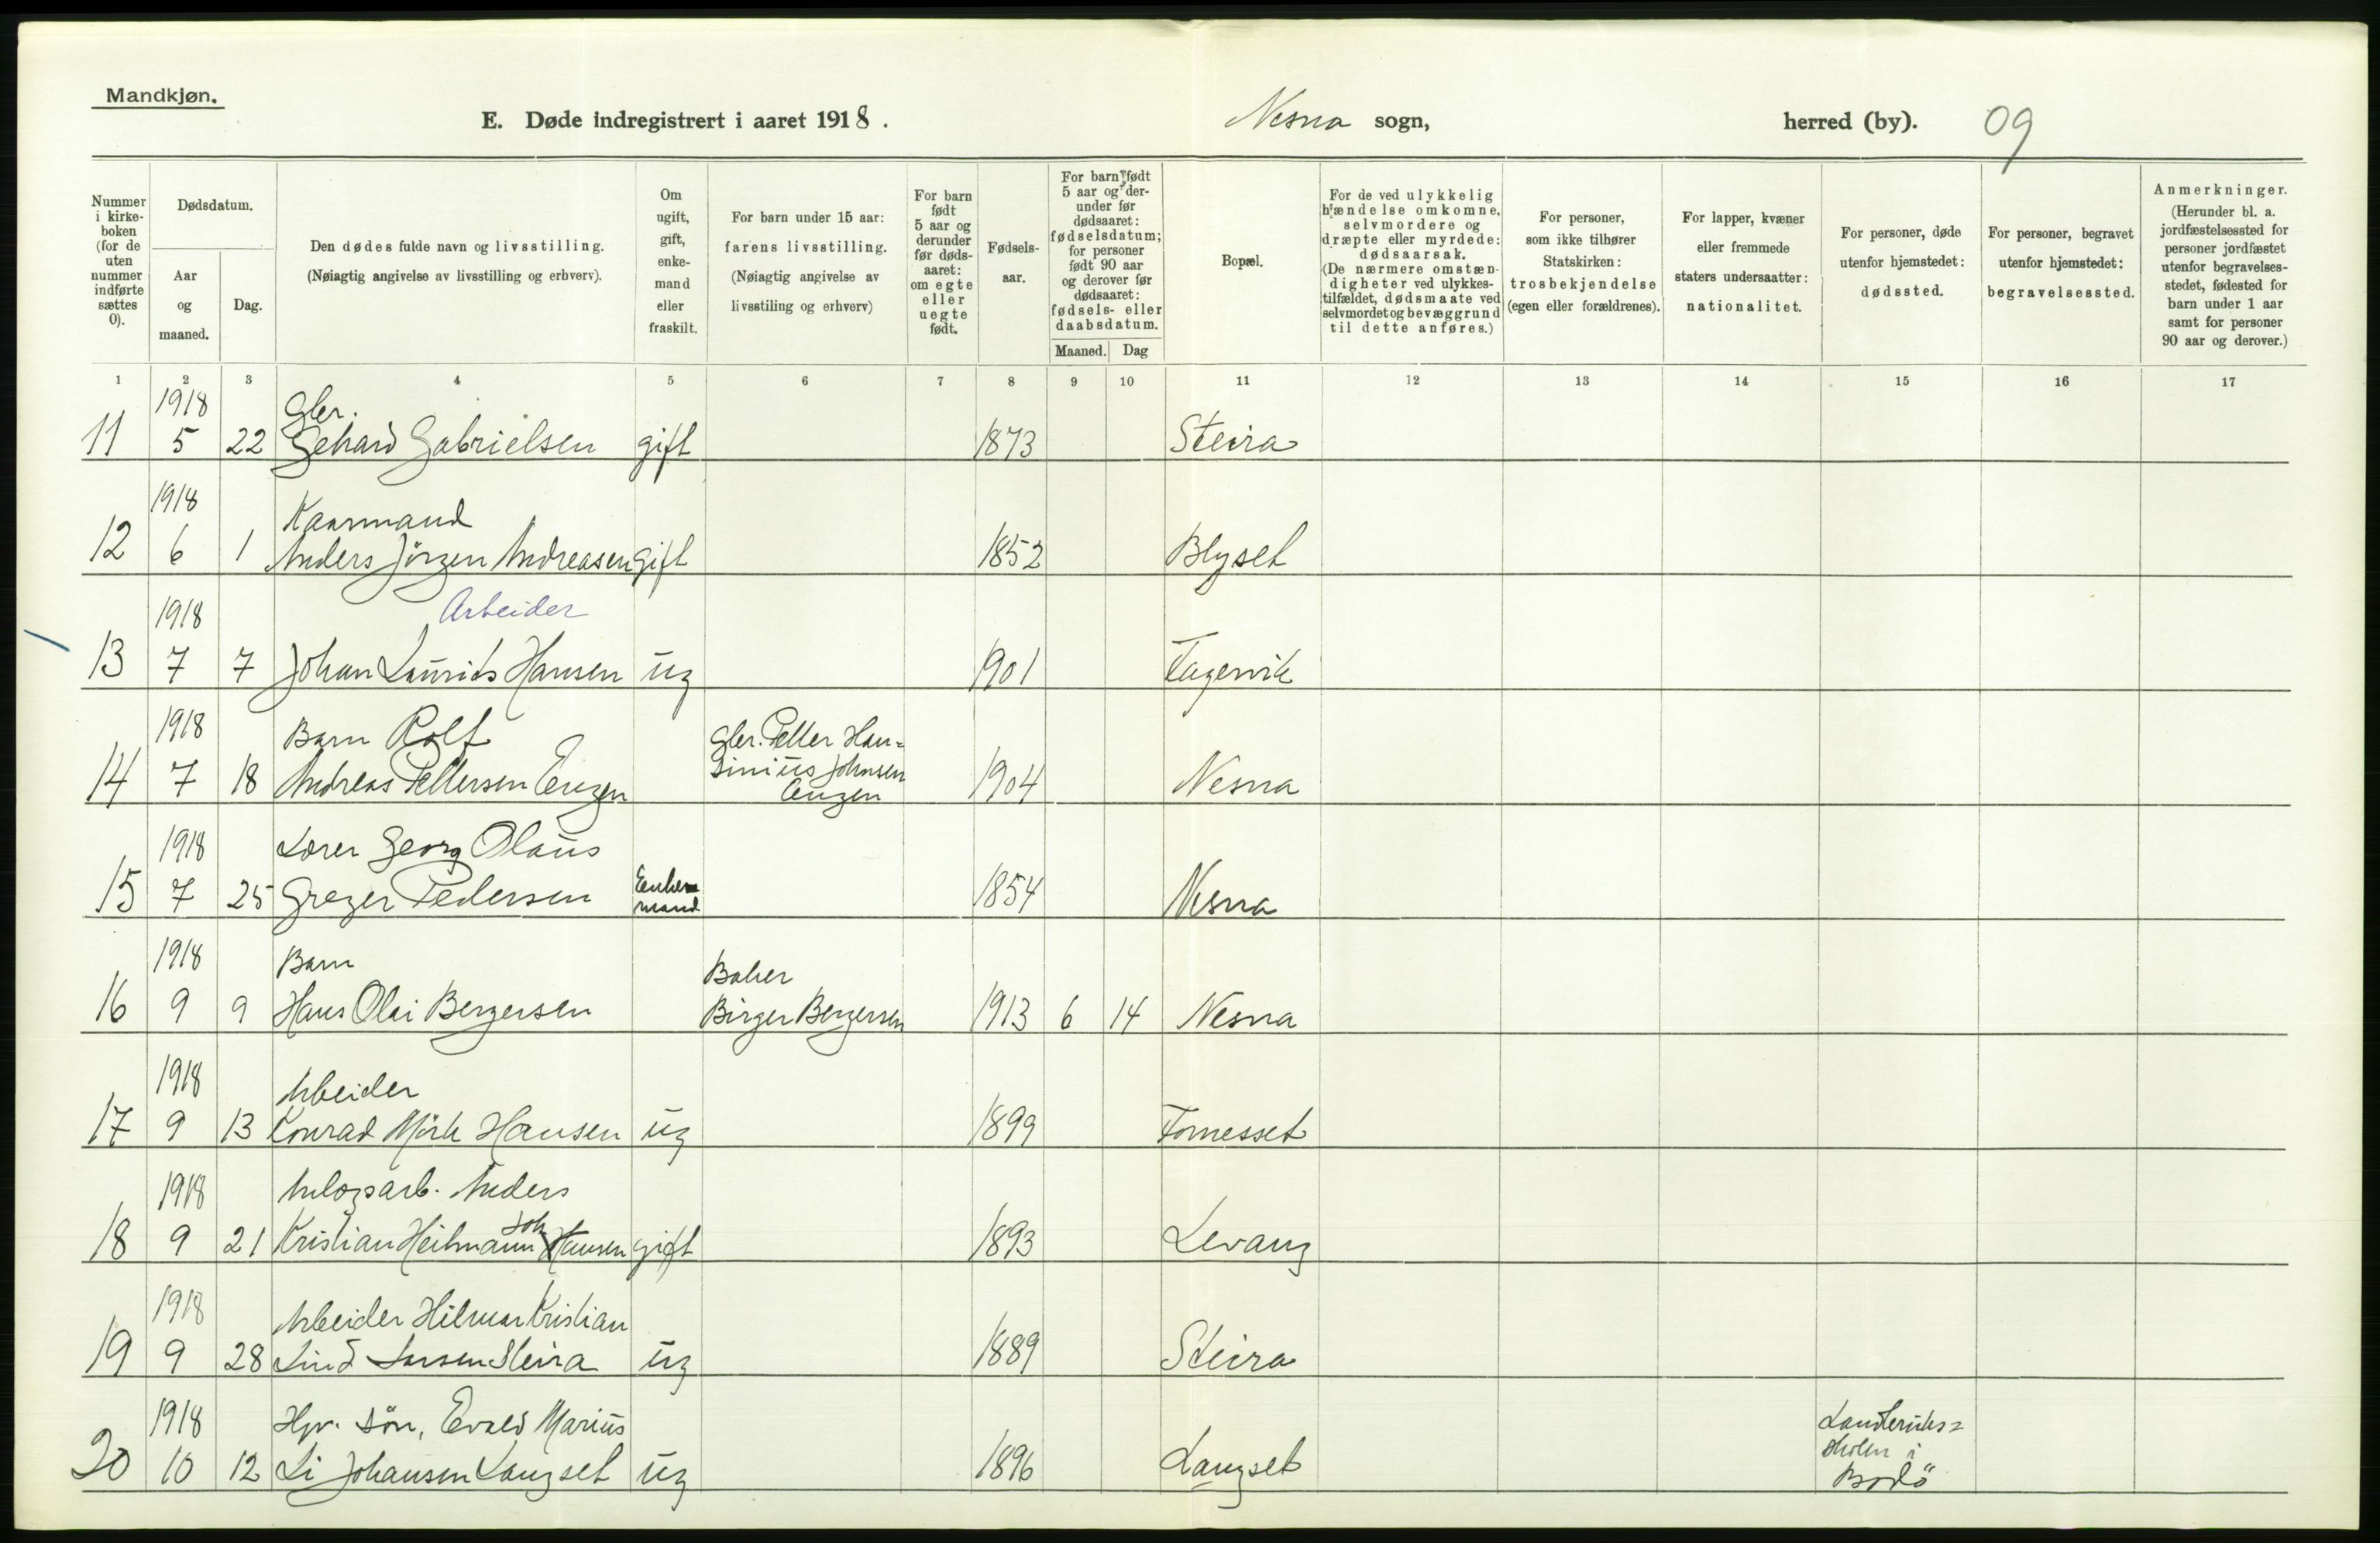 Mandkjøn.
E. Døde indregistrert i aaret 1918.
Nesna sogn,
herred (by).
09
Nummer i kirke-boken (for de uten nummer indførte sættes 0).
Dødsdatum.
Aar og maaned.
Dag.
Den dødes fulde navn og livsstilling.
(Nøiagtig angivelse av livsstilling og erhverv).
Om ugift, gift, enke-mand eller fraskilt.
For barn under 15 aar:
farens livsstilling.
(Nøiagtig angivelse av livsstiling og erhverv)
For barn født 5 aar og derunder før døds-aaret: om egte eller uegte født.
Fødsels-aar.
For barn født 5 aar og der-under før dødsaaret: fødselsdatum; for personer født 90 aar og derover før dødsaaret: fødsels- eller daabsdatum.
Maaned.
Dag
Bopæl.
For de ved ulykkelig hændelse omkomne, selvmordere og dræpte eller myrdede: dødsaarsak.
(De nærmere omstæn-digheter ved ulykkes-tilfældet, dødsmaate ved selvmordet og bevæggrund til dette anføres.)
For personer, som ikke tilhører Statskirken: trosbekjendelse (egen eller forældrenes).
For lapper, kvæner eller fremmede staters undersaatter: nationalitet.
For personer, døde utenfor hjemstedet: dødssted.
For personer, begravet utenfor hjemstedet: begravelsessted.
Anmerkninger.
(Herunder bl. a. jordfæstelsessted for personer jordfæstet utenfor begravelses-stedet, fødested for barn under 1 aar samt for personer 90 aar og derover.)
1 2 3 4 5 6 7 8 9 10 11 12 13 14 15 16 17
1918 Gbr.
11 5 22 Gehard Gabrielsen gift 1873 Steira
1918 Kaarmand
12 6 1 Anders Jörgen Andreasen gift 1852 Blyset
1918 Arbeider
13 7 7 Johan Laurits Hansen ug 1901 Fagervik
1918 Barn Rolf Gbr. Petter Han-
14 7 18 Andreas Pettersen Engen sinius Johnsen 1904 Nesna
Engen
1918 Lærer Georg Olaus
15 7 25 Greger Pedersen Enke- 1854 Nesna
mand
1918 Barn Baker
16 9 9 Hans Olai Bergersen Birger Bergersen 1913 6 14 Nesna
1918 Arbeider
17 9 13 Konrad Mörk Hansen ug 1899 Fornesset
1918 Anlægsarb. Anders
Joh
18 9 21 Kristian Heitmann Hansen gift 1893 Levang
1918 Arbeider Hilmar Kristian
19 9 28 Lind Larsen Steira ug 1889 Steira
1918 Hpr. sön, Evald Marius Landbruks=
20 10 12 Li Johansen Langset ug 1896 Langset skolen i
Bodö